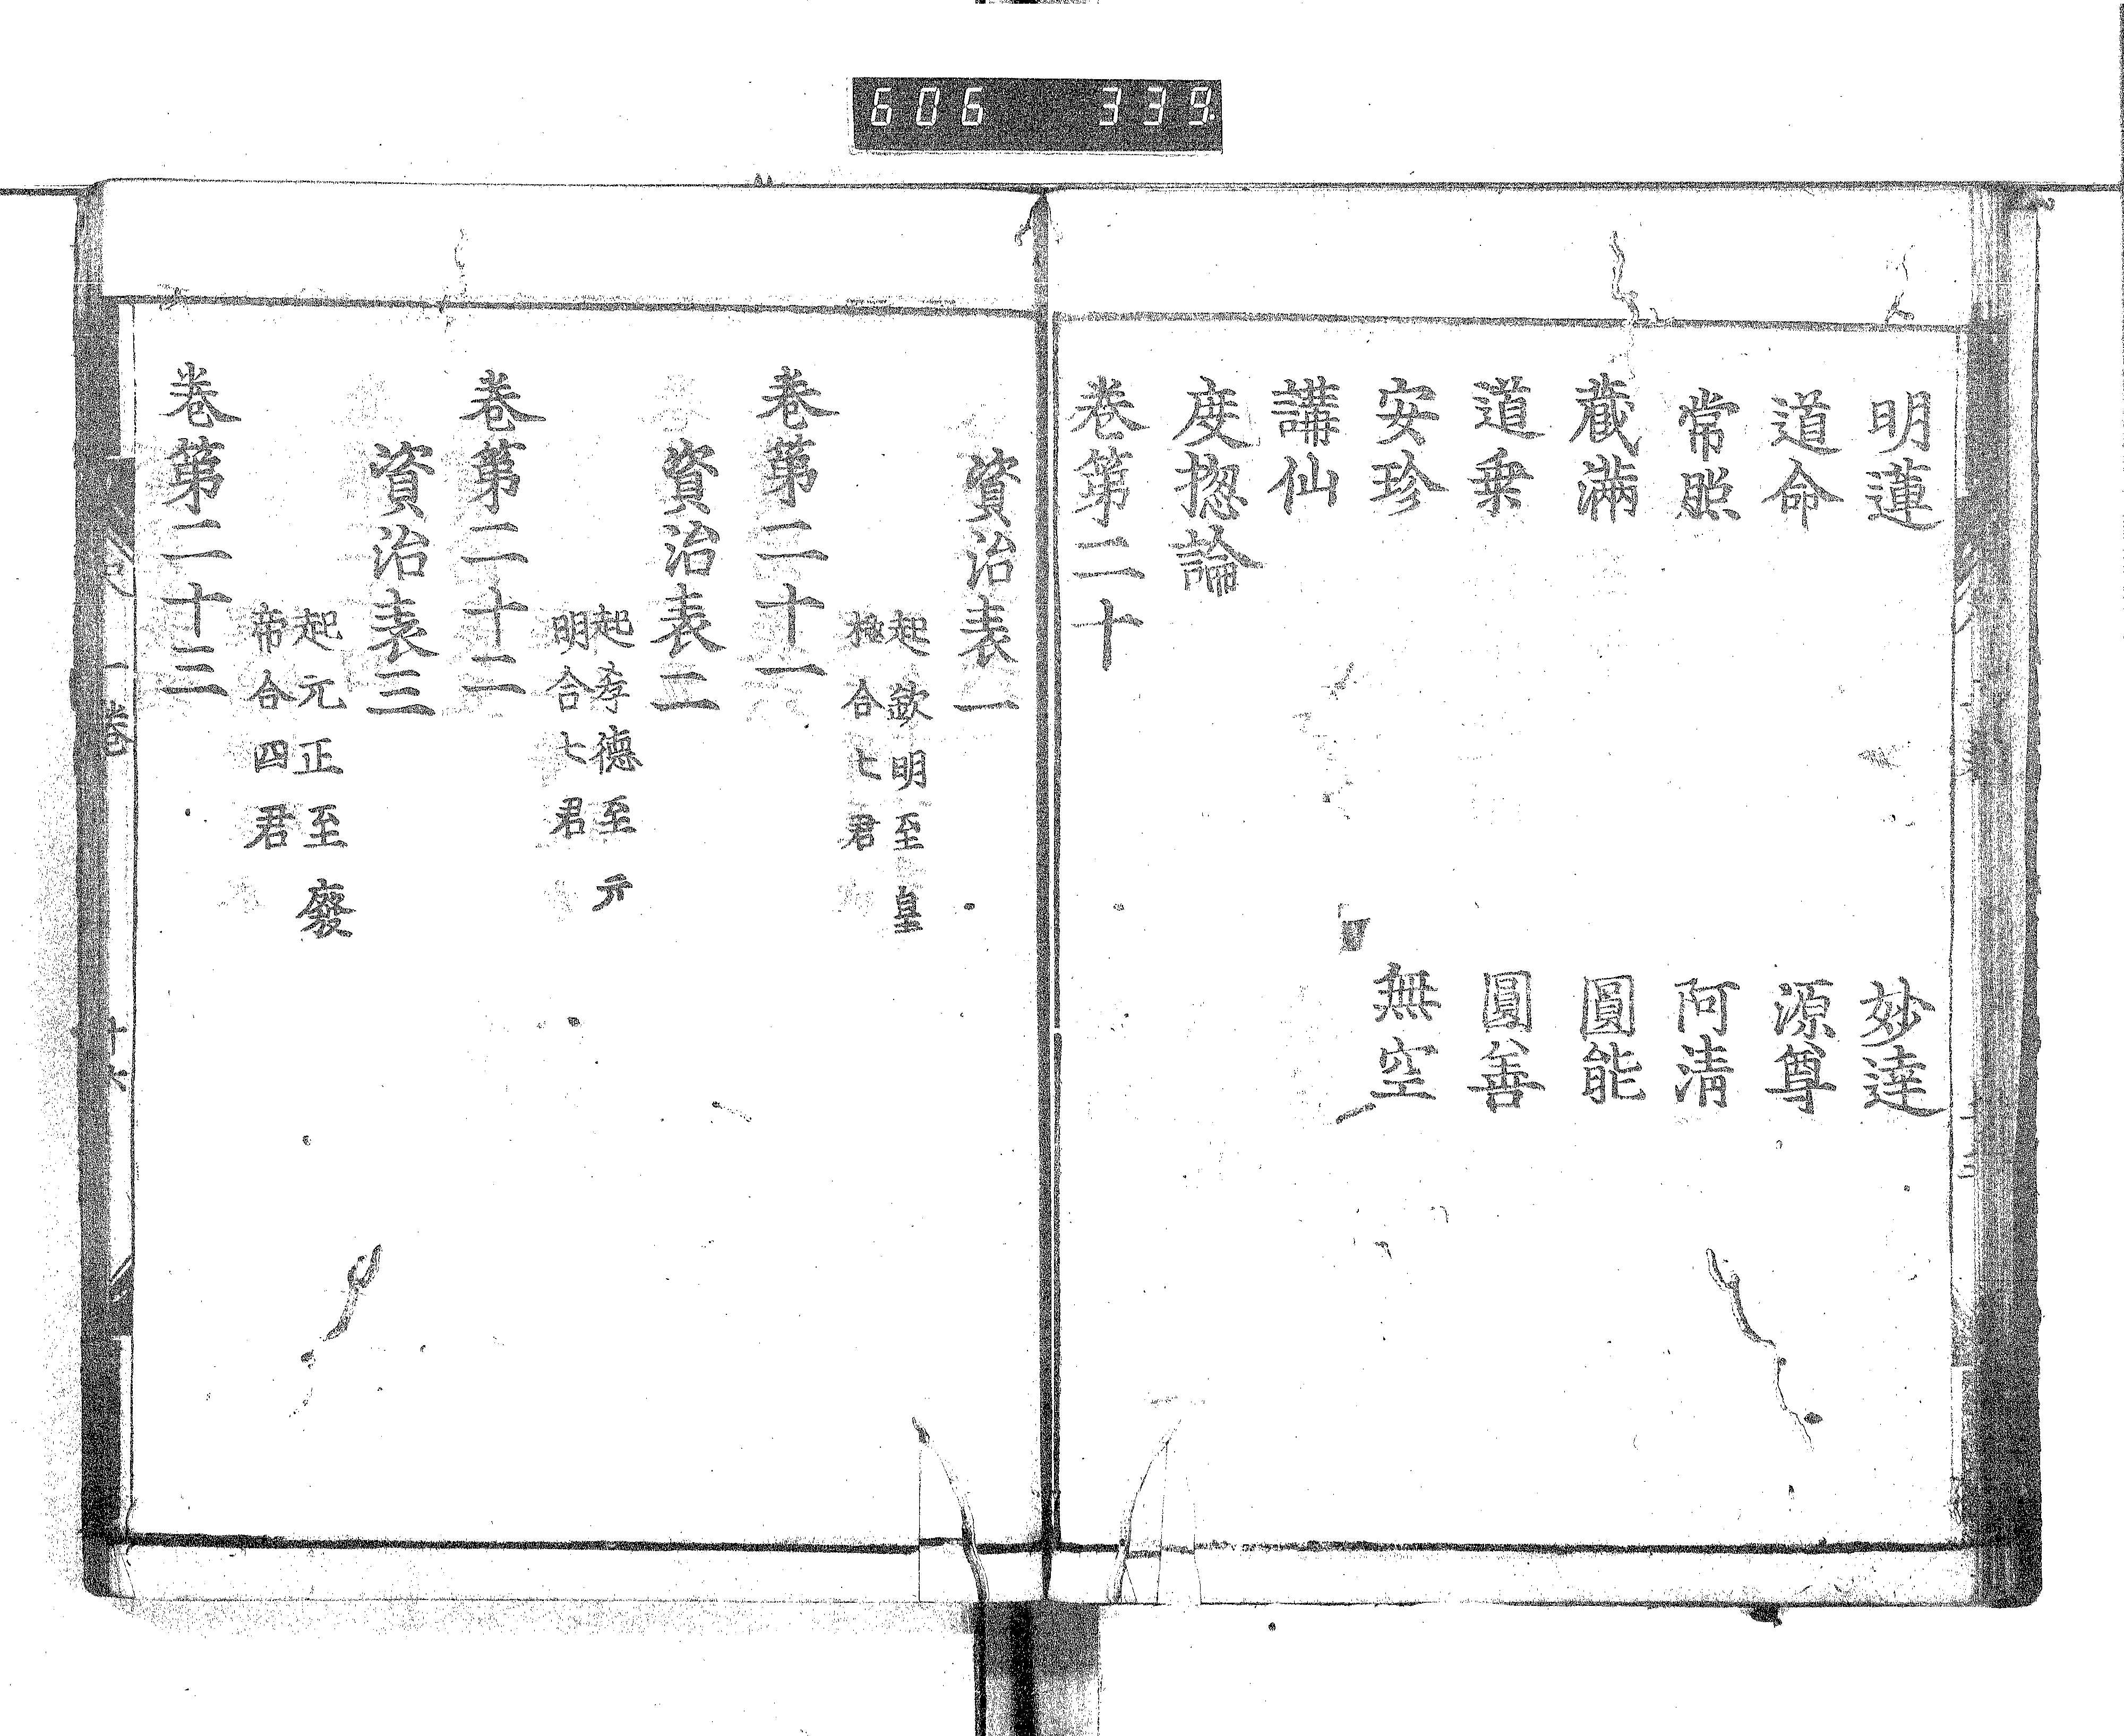 606 339
明蓮 妙達
道命 源尊
常照 阿清
蔵滿 圓能
道乗 圓善
安珍 無空
講仙
度揔論
卷第二十
資治表一
起欽明至皇
極合七君
卷第二十一
資治表二
起孝德至元
明合七君
卷第二十二
資治表三
起元正至廢
帝合四君
卷第二十三
一卷